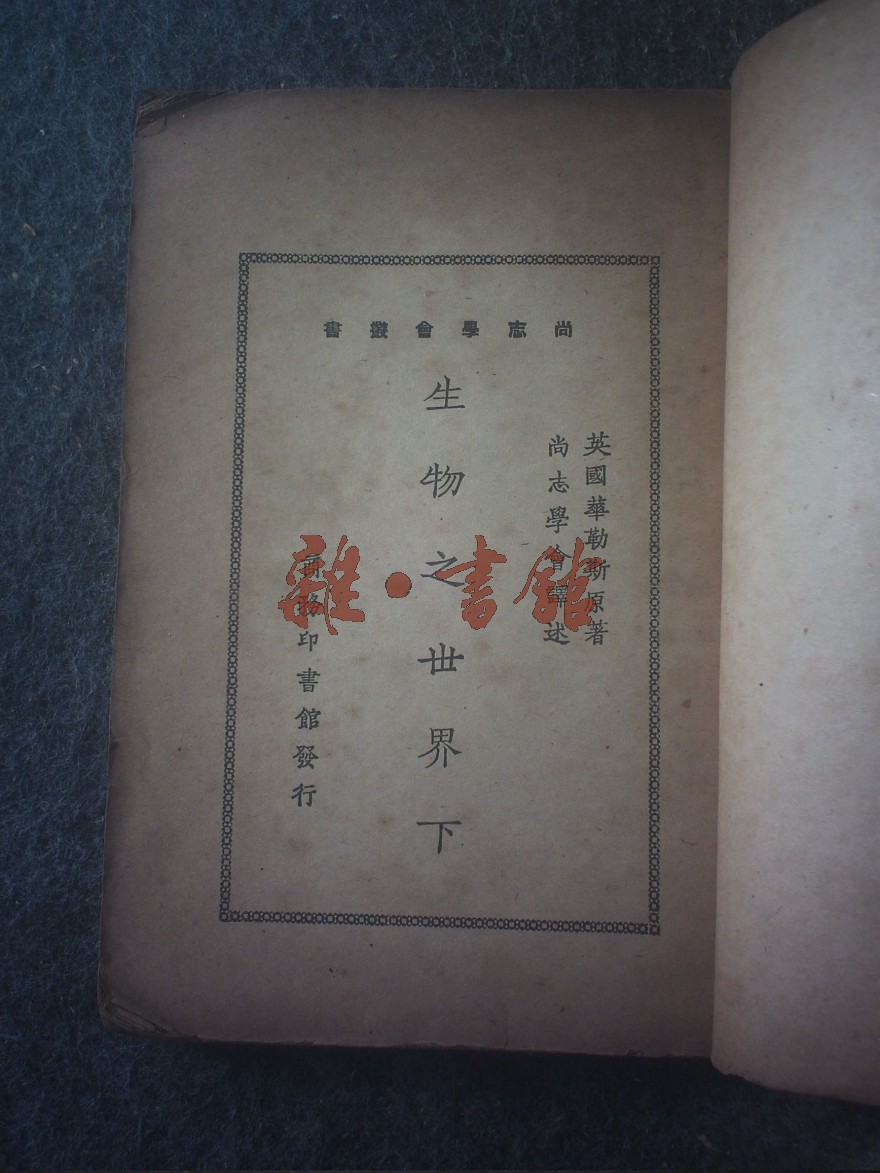 尚志學會叢書
英國華勒斯原著
尚志學會譯述
生物之世界下
商務印書館發行
雜·書館